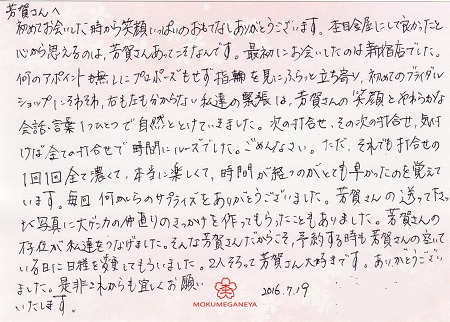 芳賀さんへ
初めてお会いした時から笑顔いっぱいのおもてなしありがとうございます。杢目金屋にして良かったと
心から思えるのは、芳賀さんあってこそなんです。最初にお会いしたのは新宿店でした。
何のアポイントも無しにプロポーズもせず指輪を見にふらっと立ち寄り、初めてのブライダル
ショップにそわそわ、右も左も分からない私達の緊張は、芳賀さんの笑顔とやわらかな
会話・言葉1つひとつで自然ととけていきました。次の打合せ、その次の打合せ、気付
けば全ての打合せで時間にルーズでした。ごめんなさい。ただ、それでも打合せの
1回1回全て濃くて、本当に楽しくて、時間が経つのがとても早かったのを覚えて
います。毎回何かしらのサプライズをありがとうございました。芳賀さんの送って下さっ
た写真に大ゲンカの仲直りのきっかけを作ってもらったこともありました。芳賀さんの
存在が私達をつなげました。そんな芳賀さんだからこそ、予約する時も芳賀さんの空いて
いる日に日程を変更してもらいました。2人そろって芳賀さん大好きです。ありがとうござい
ました。是非これからも宜しくお願い
いたします。
MOKUMEGANEYA
2016.7.19